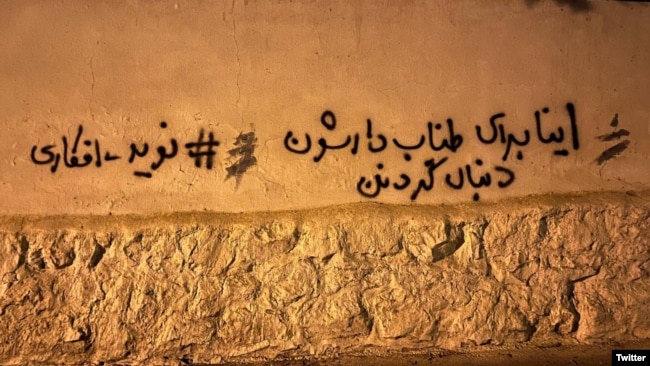 اینا برای طناب دارشون
دنبال گردنن
#نوید_افکاری
Twitter